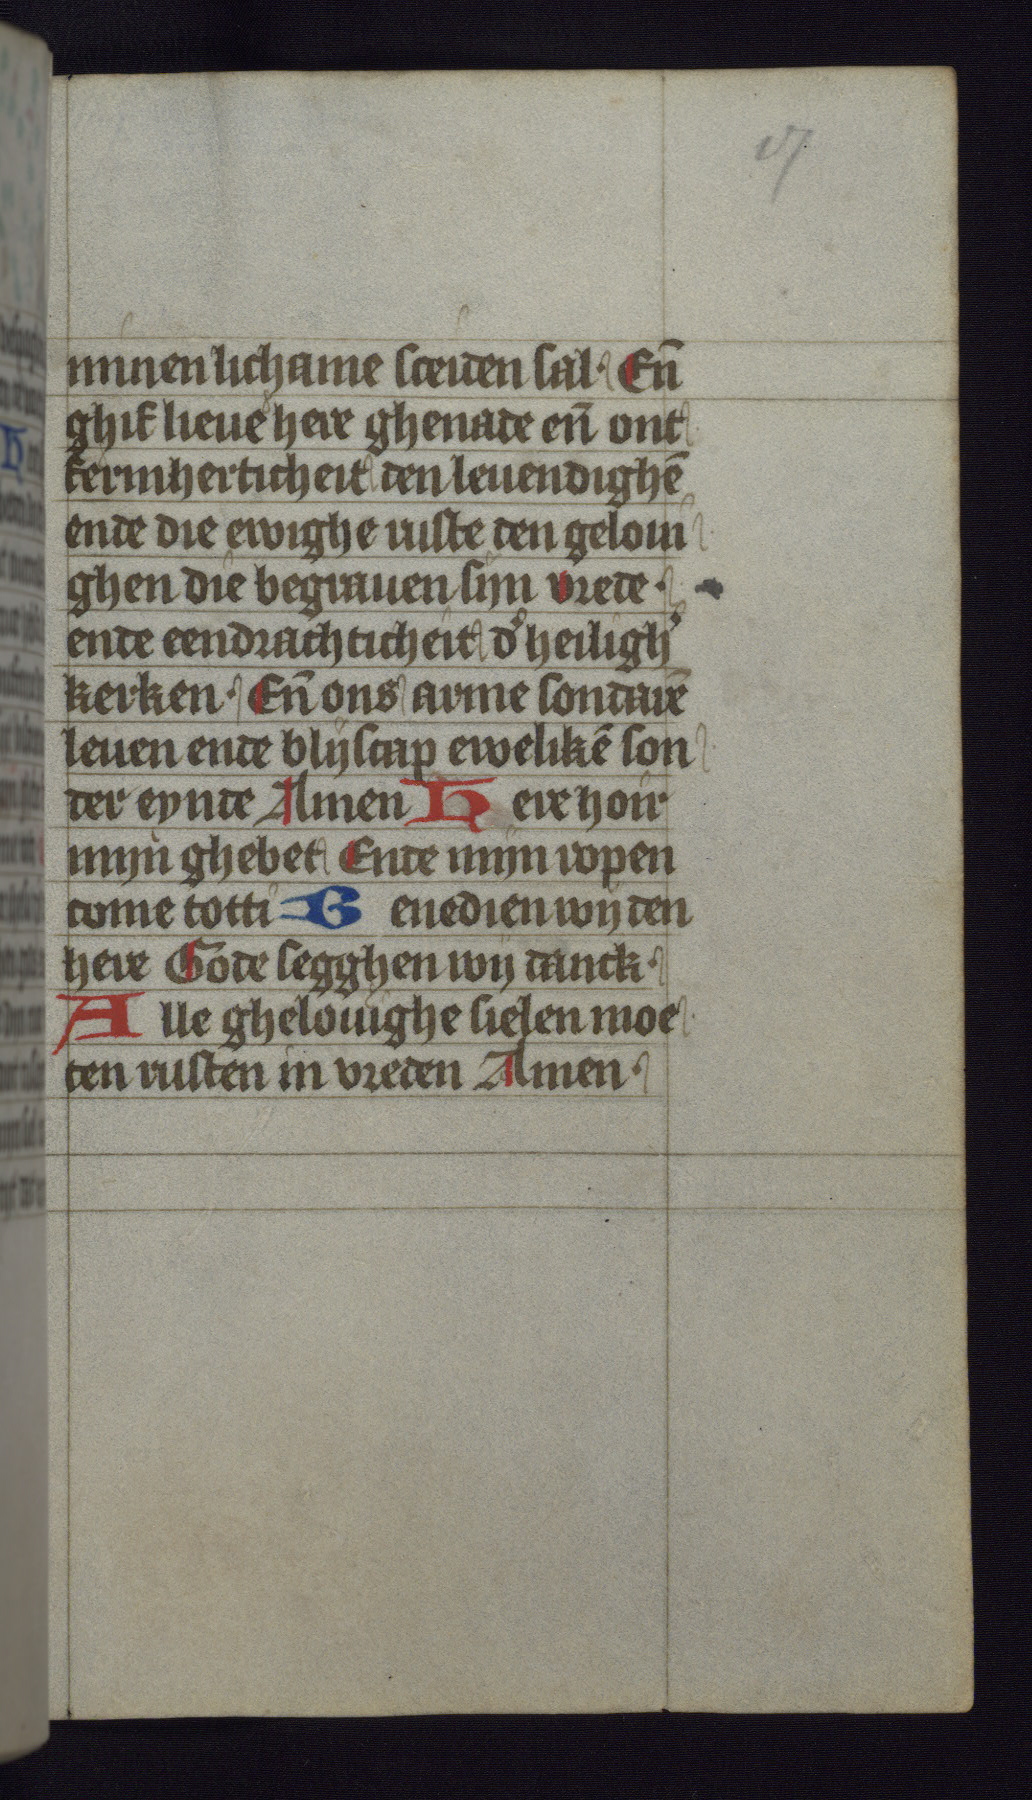 17
minen lichame sceiden sal. En̄
ghif lieue here ghenade en̄ ont
fermherticheit den leuendighē
ende die ewighe ruste den geloui
ghen die begrauen sijn vrede.
ende eendrachticheit d' heiligh'
kerken. En̄ ons arme sondarē
leuen ende blijscap ewelikē son
der eynde Amen Here hoir
mijn ghebet Ende mijn ropen
come totti Benedien wij den
here Gode segghen wij danck.
Alle ghelouighe sielen moe
ten rusten in vreden Amen.